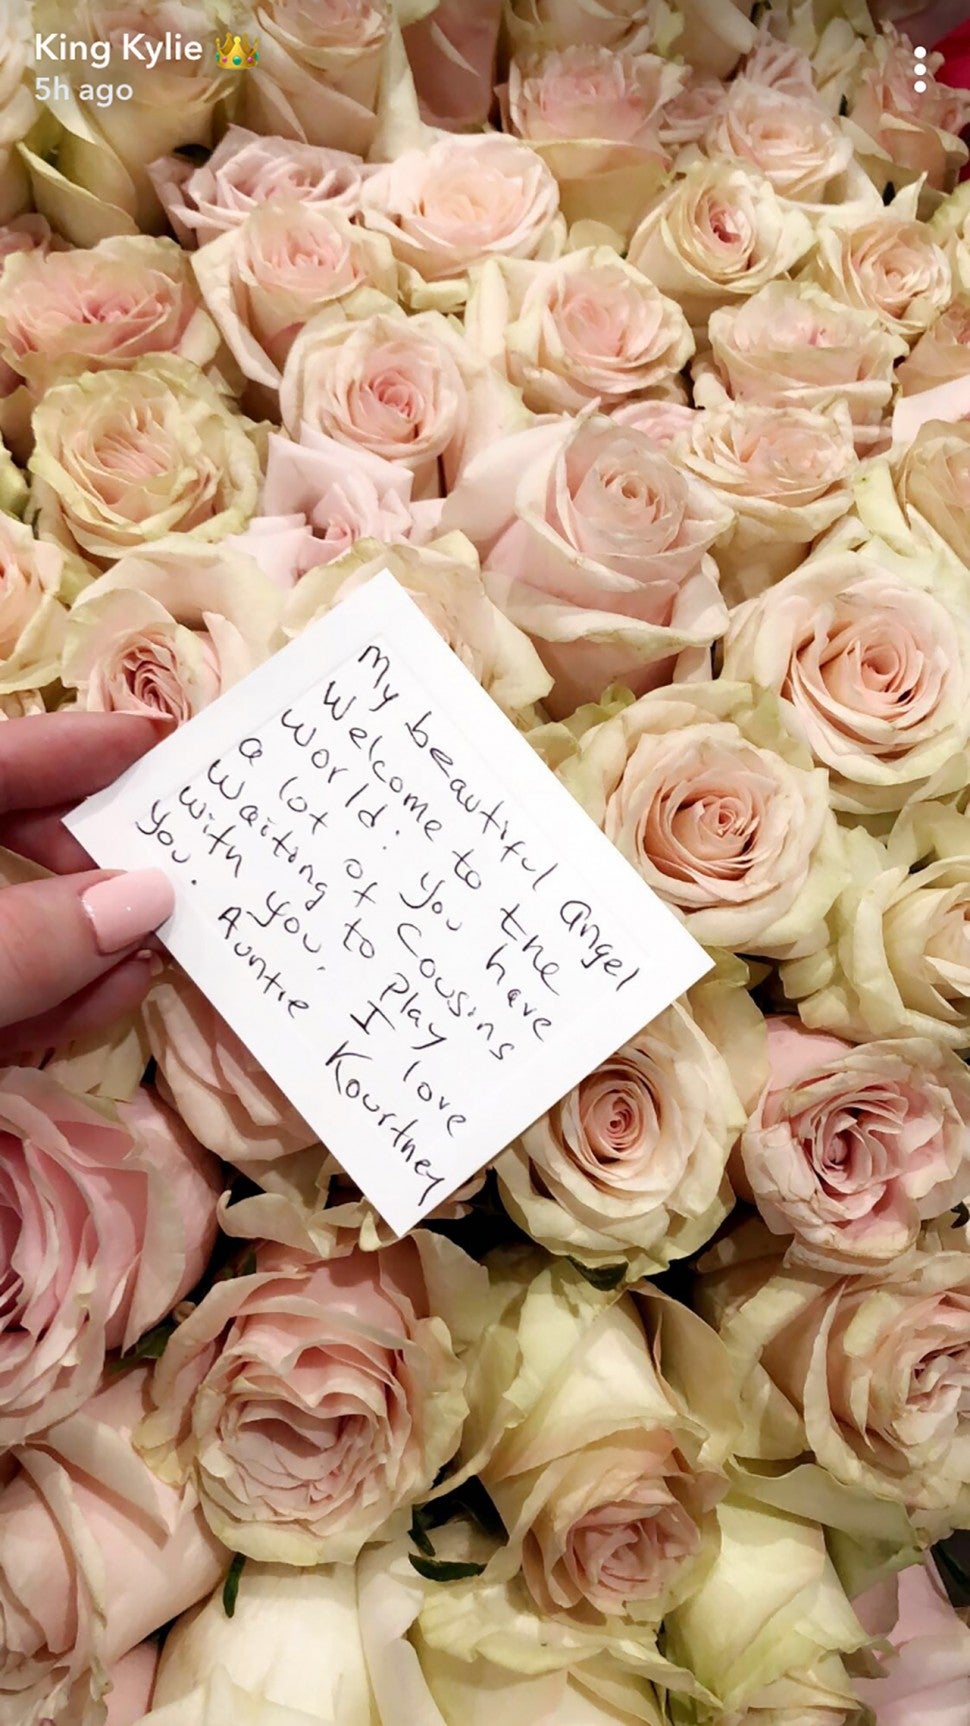 King Kylie 👑
5h ago
My beautiful angel
Welcome to the
world. You have
a lot of cousins
waiting to play
with you. I love
you.
Auntie Kourtney